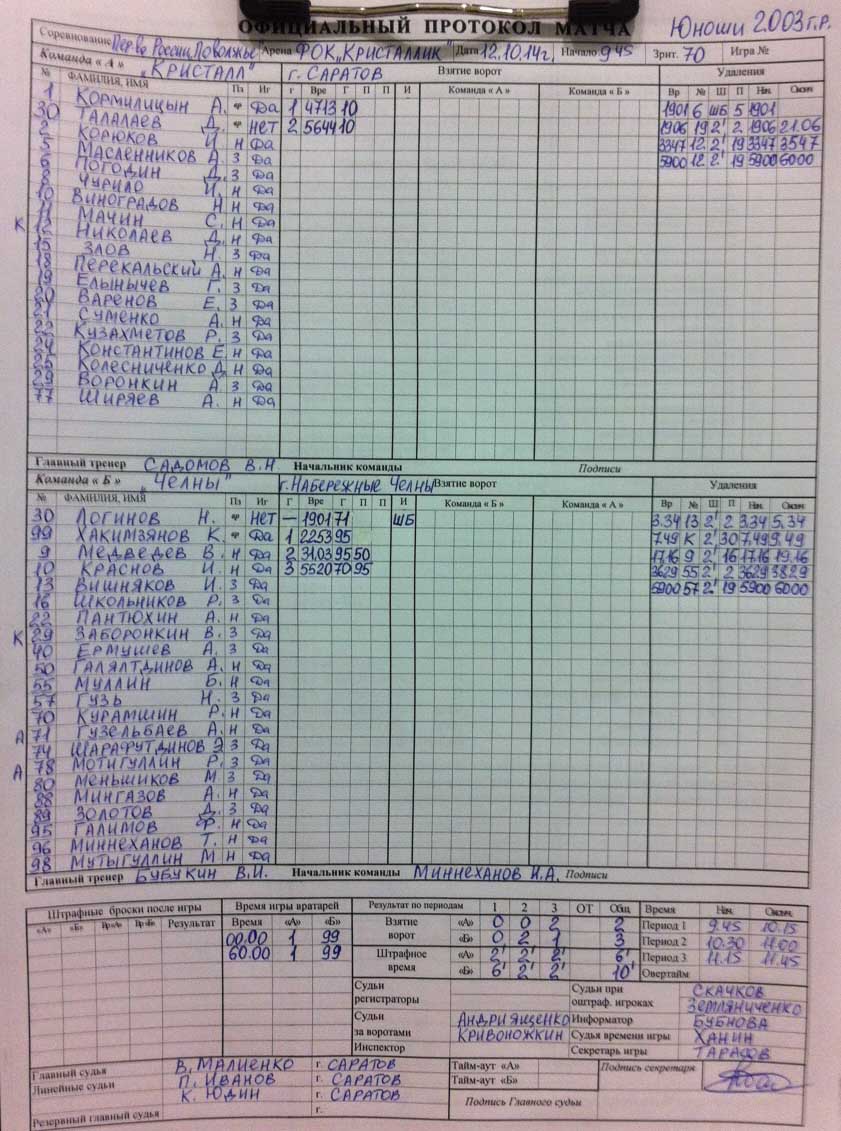 ОФИЦИАЛЬНЫЙ ПРОТОКОЛ МАТЧА Юноши 2003 г.р.
Соревнование Пер-во России, Поволжье Арена ФОК „Кристаллик" Дата 12.10.14г. Начало 9 45 Зрит. 70 Игра №
Команда «А» „Кристалл" г. Саратов Взятие ворот Удаления
№ ФАМИЛИЯ, ИМЯ Пз Иг Г Вре Г П П И Команда «А» Команда «Б» Вр № Ш П Нач. Оконч
1 Кормилицын А. вр Да 1 4713 10 1901 6 ШБ 5 1901
30 Талалаев Д. вр Нет 2 5644 10 1906 19 2' 2 1906 21.06
2 Корюков И. Н Да 3347 12 2' 19 3347 3547
5 Масленников А. З Да 5900 12 2' 19 5900 6000
6 Погодин Д. З Да
8 Чурило И. Н Да
10 Виноградов Н Н Да
11 Мачин С. Н Да
К 12 Николаев Д. Н Да
15 Злов Н. З Да
18 Перекальский А. Н Да
19 Елынычев Г. З Да
20 Варенов Е. З Да
21 Суменко А. Н Да
22 Кузахметов Р. З Да
24 Константинов Е. Н Да
25 Колесниченко Д. Н Да
29 Воронкин А. З Да
77 Ширяев А. Н Да
Главный тренер Садомов В.Н. Начальник команды Подписи
Команда «Б» „Челны" г. Набережные Челны Взятие ворот Удаления
№ ФАМИЛИЯ, ИМЯ Пз Иг Г Вре Г П П И Команда «Б» Команда «А» Вр № Ш П Нач. Оконч
30 Логинов Н. вр Нет — 1901 71 ШБ 3.34 13 2' 2 3.34 5.34
99 Хакимзянов К. вр Да 1 2253 95 7.49 К 2' 30 7.49 9.49
9 Медведев В. Н Да 2 31.03 95 50 17.16 9 2' 16 17.16 19.16
10 Краснов И. Н Да 3 5520 70 95 3629 55 2' 2 3629 3829
13 Вишняков И. З Да 5900 57 2' 19 5900 6000
16 Школьников Р. З Да
22 Пантюхин А. Н Да
К 29 Заборонкин В. З Да
40 Ермушев А. З Да
50 Галялтдинов А. Н Да
55 Муллин Б. Н Да
57 Гузь Н. З Да
70 Курамшин Р. Н Да
А 71 Гузельбаев А. Н Да
74 Шарафутдинов Э. З Да
А 78 Мотигуллин Р. З Да
80 Меньшиков М З Да
88 Мингазов А. Н Да
89 Золотов Д. З Да
95 Галимов Ф. Н Да
96 Миннеханов Т. Н Да
98 Мутыгуллин М Н Да
Главный тренер Бубукин В.И. Начальник команды Миннеханов И.А. Подписи
Штрафные броски после игры Время игры вратарей Результат по периодам 1 2 3 ОТ Общ Время Нач. Оконч.
«А» «Б» Вр«А» Вр«Б» Результат Время «А» «Б» Взятие ворот «А» 0 0 2 2 Период 1 9.45 10.15
00.00 1 99 «Б» 0 2 1 3 Период 2 10.30 11.00
60.00 1 99 Штрафное время «А» 2' 2' 2' 6' Период 3 11.15 11.45
«Б» 6' 2' 2' 10' Овертайм
Судьи регистраторы Судьи при оштраф. игроках Скачков
Земляниченко
Судьи за воротами Андриященко Информатор Бубнова
Кривоножкин Судья времени игры Ханин
Инспектор Секретарь игры Тарасов
Главный судья В. Малиенко г. Саратов Тайм-аут «А» Подпись секретаря
Линейные судьи П. Иванов г. Саратов Тайм-аут «Б»
К. Юдин г. Саратов Подпись Главного судьи
Резервный главный судья г.